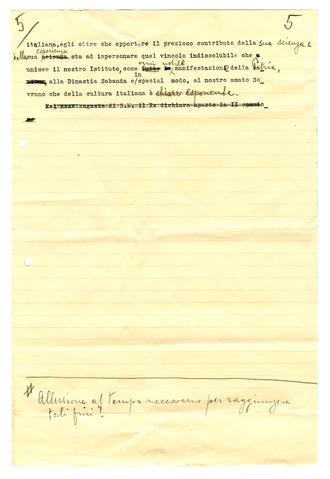 5 5
italiana, egli oltre che apportare il prezioso contributo della sua scienza e
della sua esperienza sta ad impersonare quel vincolo indissolubile che
unisce il nostro Istituto, come ogni nobile manifestazione della Patria,
alla Dinastia Sabauda e/special in modo, al nostro amato So-
vrano che della cultura italiana è chiaro esponente.
Nel nome augusto di S.M. il Re dichiaro aperta la II
# Allusione al tempo necessario per raggiungere
tali fini?